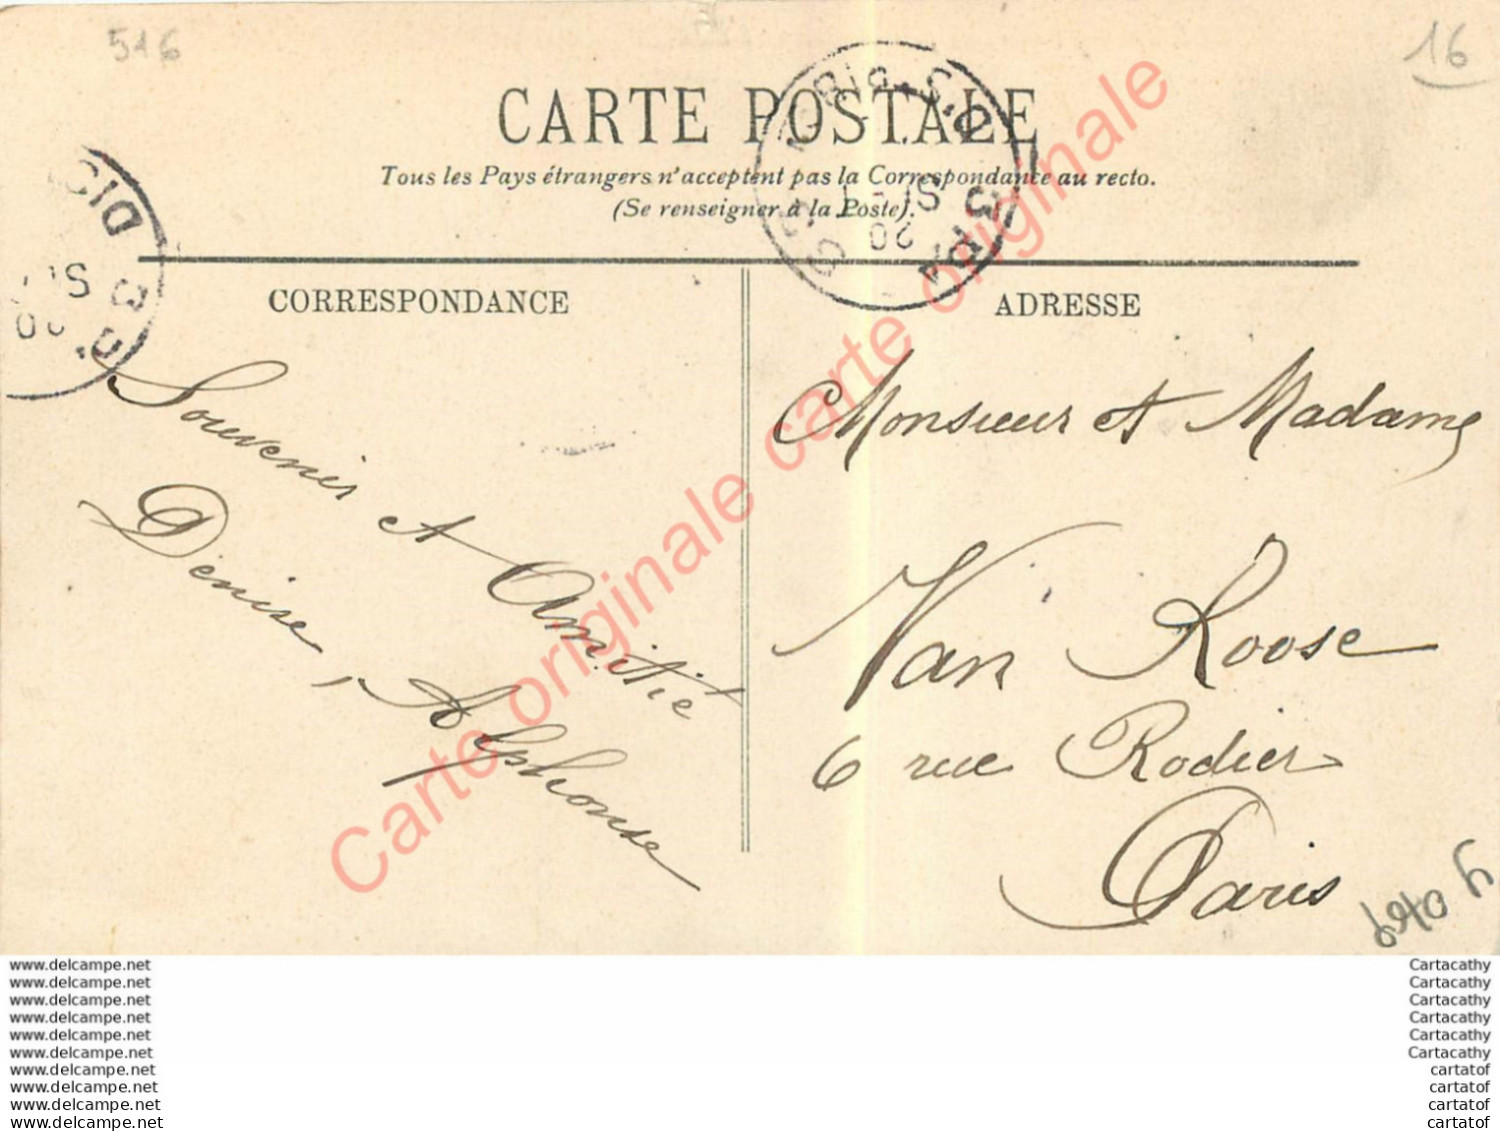 516
16
CARTE POSTALE
Tous les Pays étrangers n'acceptent pas la Correspondance au recto.
(Se renseigner à la Poste).
CORRESPONDANCE
Souvenir et Amitié
Denise, Alphonse
ADRESSE
Monsieur et Madame
Van Roose
6 rue Rodier
Paris
Carte originale carte originale
www.delcampe.net
www.delcampe.net
www.delcampe.net
www.delcampe.net
www.delcampe.net
www.delcampe.net
www.delcampe.net
www.delcampe.net
www.delcampe.net
www.delcampe.net
Cartacathy
Cartacathy
Cartacathy
Cartacathy
Cartacathy
Cartacathy
cartatof
cartatof
cartatof
cartatof